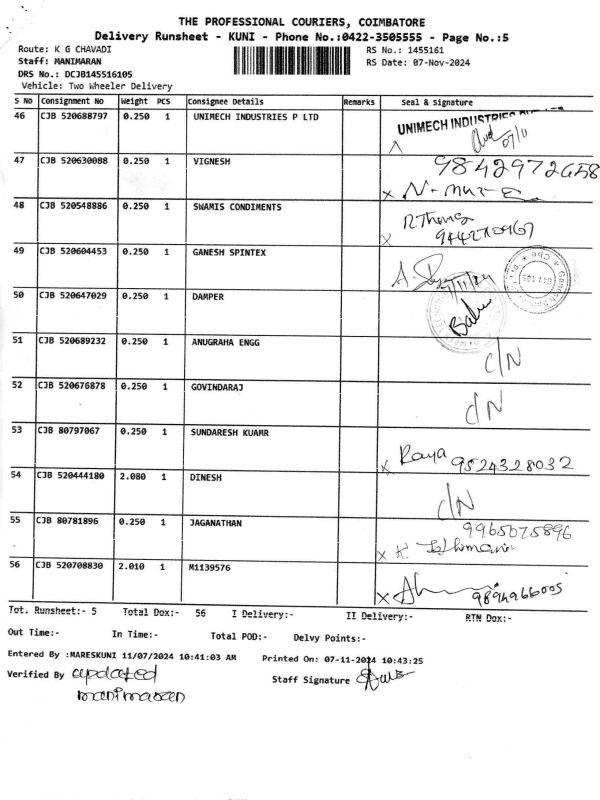 THE PROFESSIONAL COURIERS, COIMBATORE
Delivery Runsheet - KUNI - Phone No.:0422-3505555 - Page No.:5
Route: K G CHAVADI RS No.: 1455161
Staff: MANIMARAN RS Date: 07-Nov-2024
DRS No.: DCJB145516105
Vehicle: Two Wheeler Delivery
S No Consignment No Weight PCS Consignee Details Remarks Seal & Signature
46 CJB 520688797 0.250 1 UNIMECH INDUSTRIES P LTD UNIMECH INDUSTRIES
07/11
47 CJB 520630088 0.250 1 VIGNESH 9842972658
x
48 CJB 520548886 0.250 1 SWAMIS CONDIMENTS
x
49 CJB 520604453 0.250 1 GANESH SPINTEX
50 CJB 520647029 0.250 1 DAMPER Babu
51 CJB 520689232 0.250 1 ANUGRAHA ENGG C/N
52 CJB 520676878 0.250 1 GOVINDARAJ C/N
53 CJB 80797067 0.250 1 SUNDARESH KUAMR x Raya 9524328032
54 CJB 520444180 2.080 1 DINESH C/N
55 CJB 80781896 0.250 1 JAGANATHAN 9965675896
x K.
56 CJB 520708830 2.010 1 M1139576 x 9894966005
Tot. Runsheet:- 5 Total Dox:- 56 I Delivery:- II Delivery:- RTN Dox:-
Out Time:- In Time:- Total POD:- Delvy Points:-
Entered By :MARESKUNI 11/07/2024 10:41:03 AM Printed On: 07-11-2024 10:43:25
Verified By updated Staff Signature
manimaran